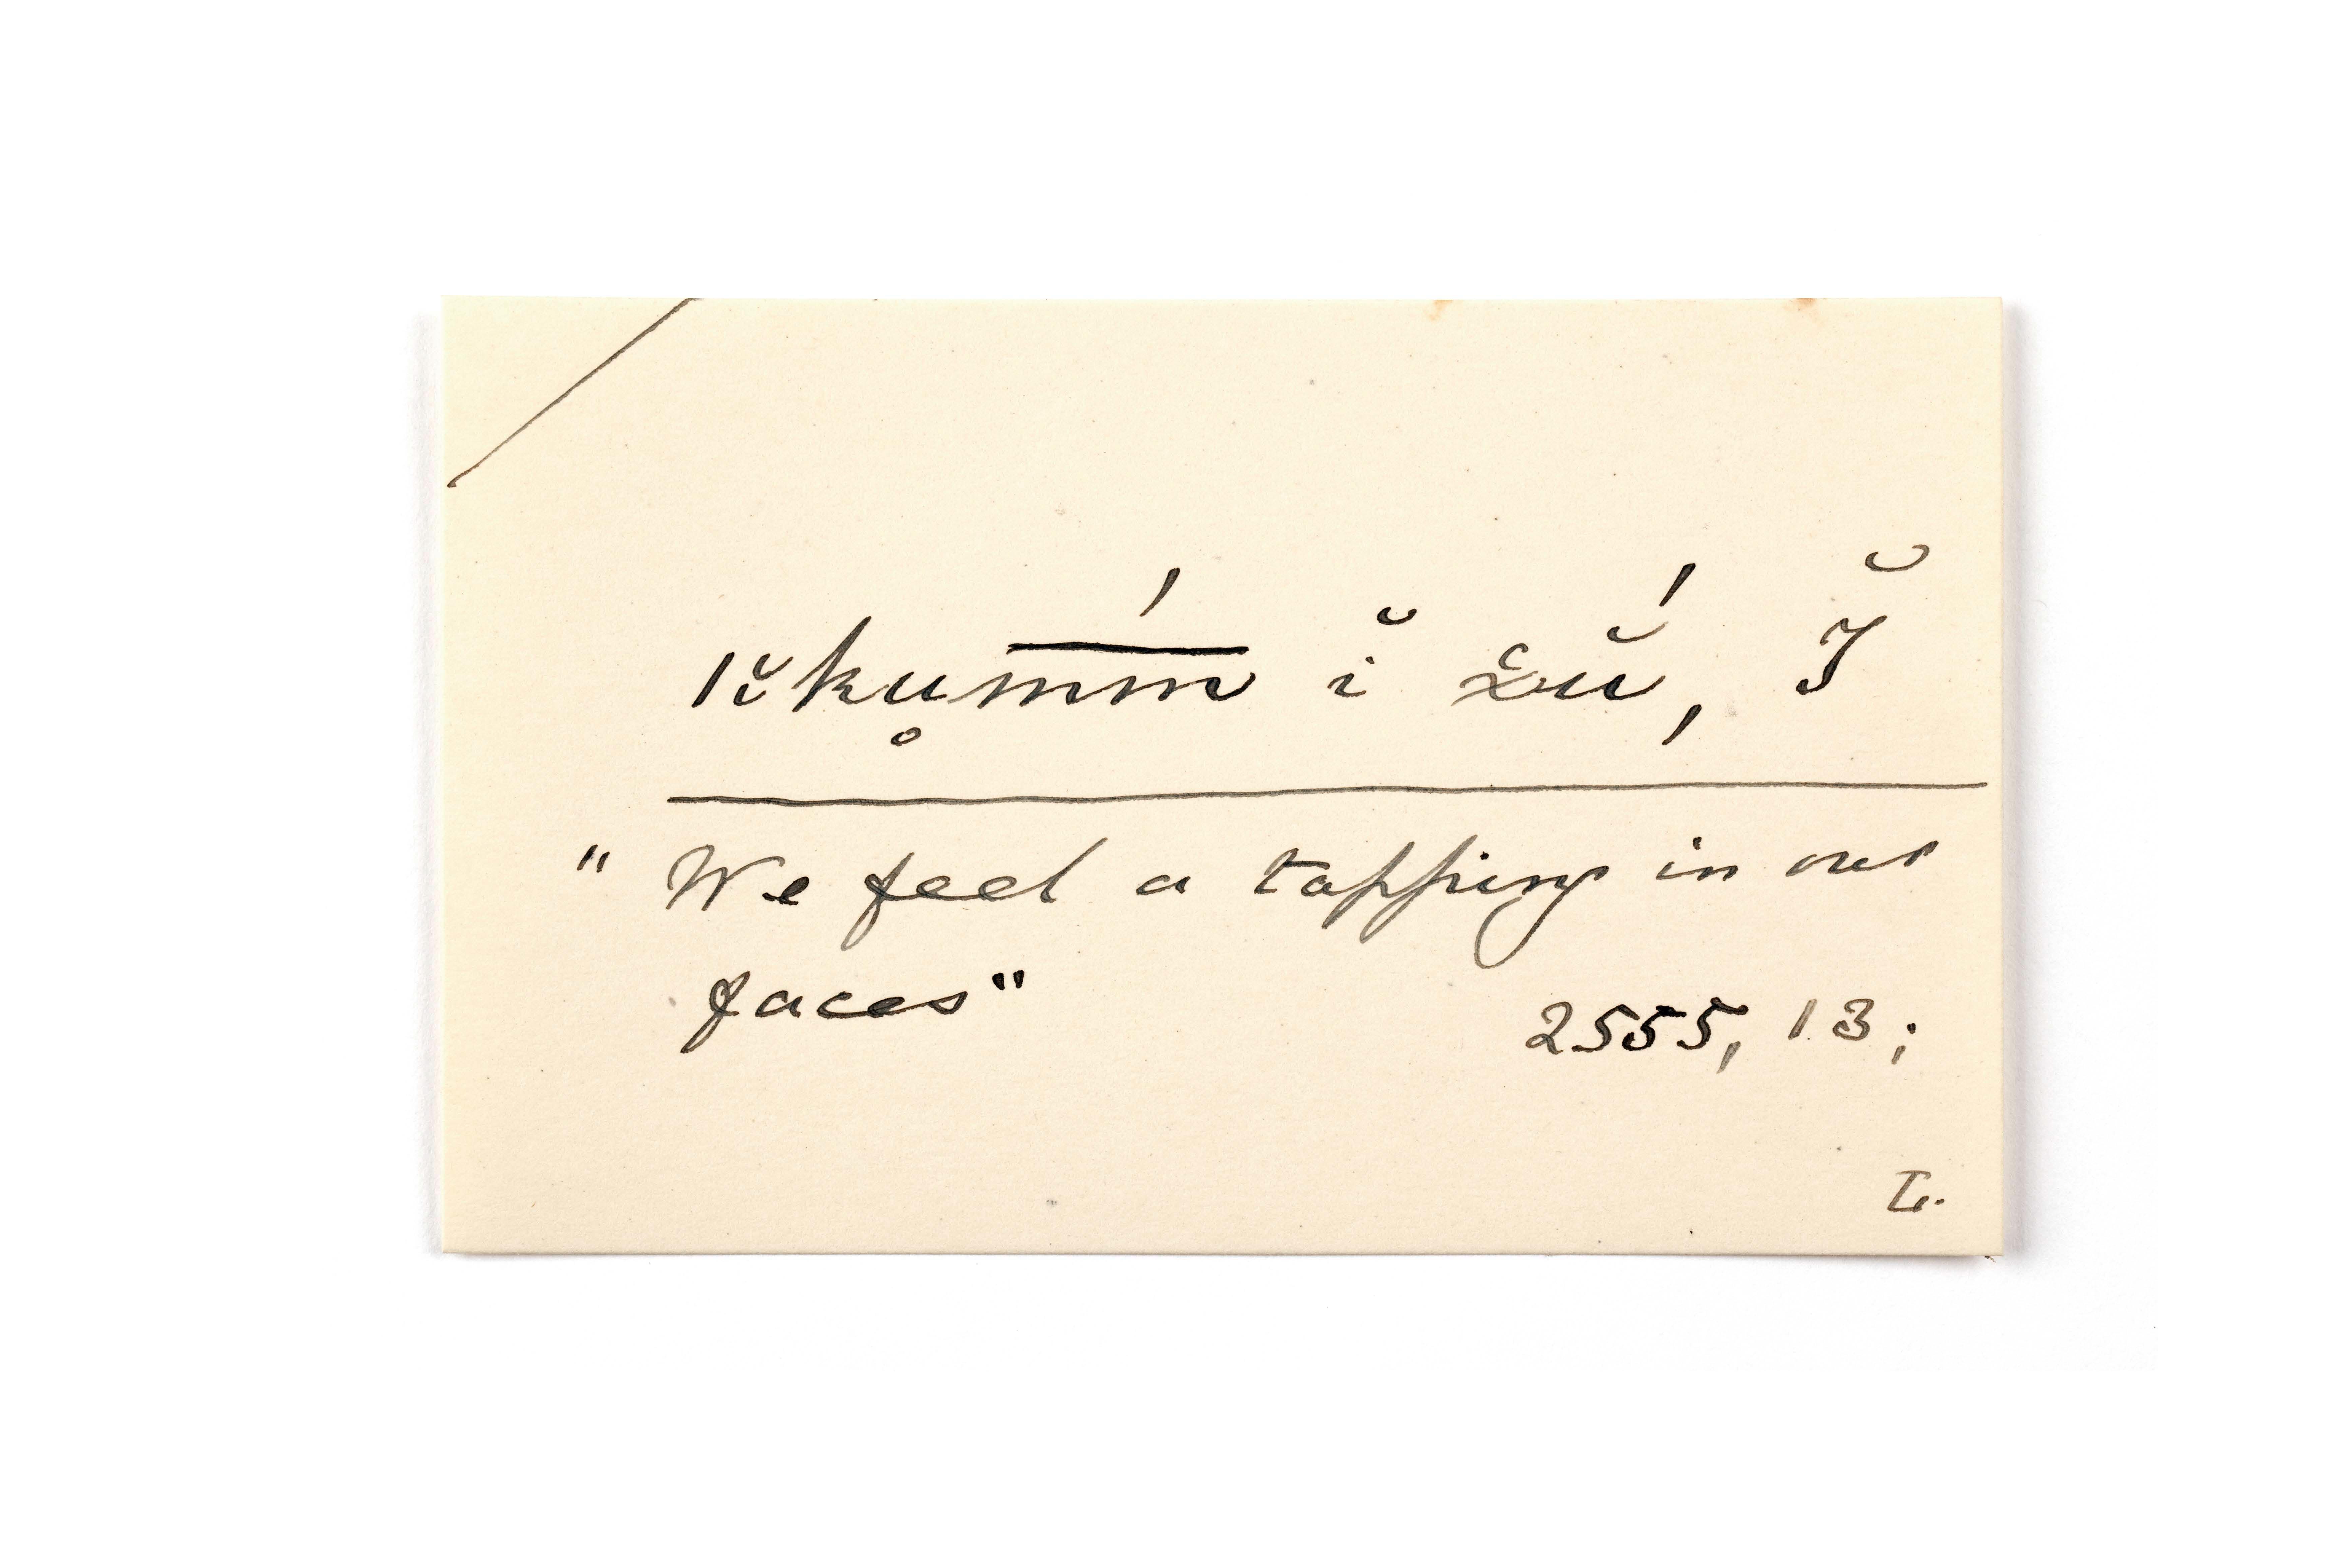 ǀĭku̥m̅́m̅ ĭ χŭ́, Ĭ
"We feel a tapping in our
faces"
2555, 13;
L.